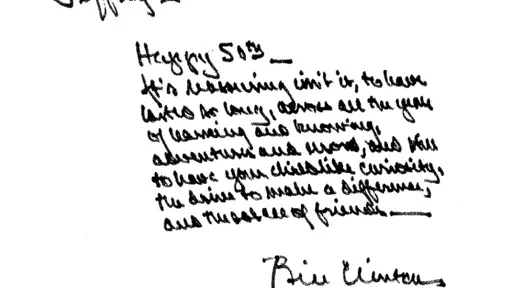 Happy 50th —
It's reassuring isn't it, to have
lasted so long, across all the years
of learning and knowing,
adventures and and still
to have your childlike curiosity,
the drive to make a difference,
and the solace of friends —
Bill Clinton